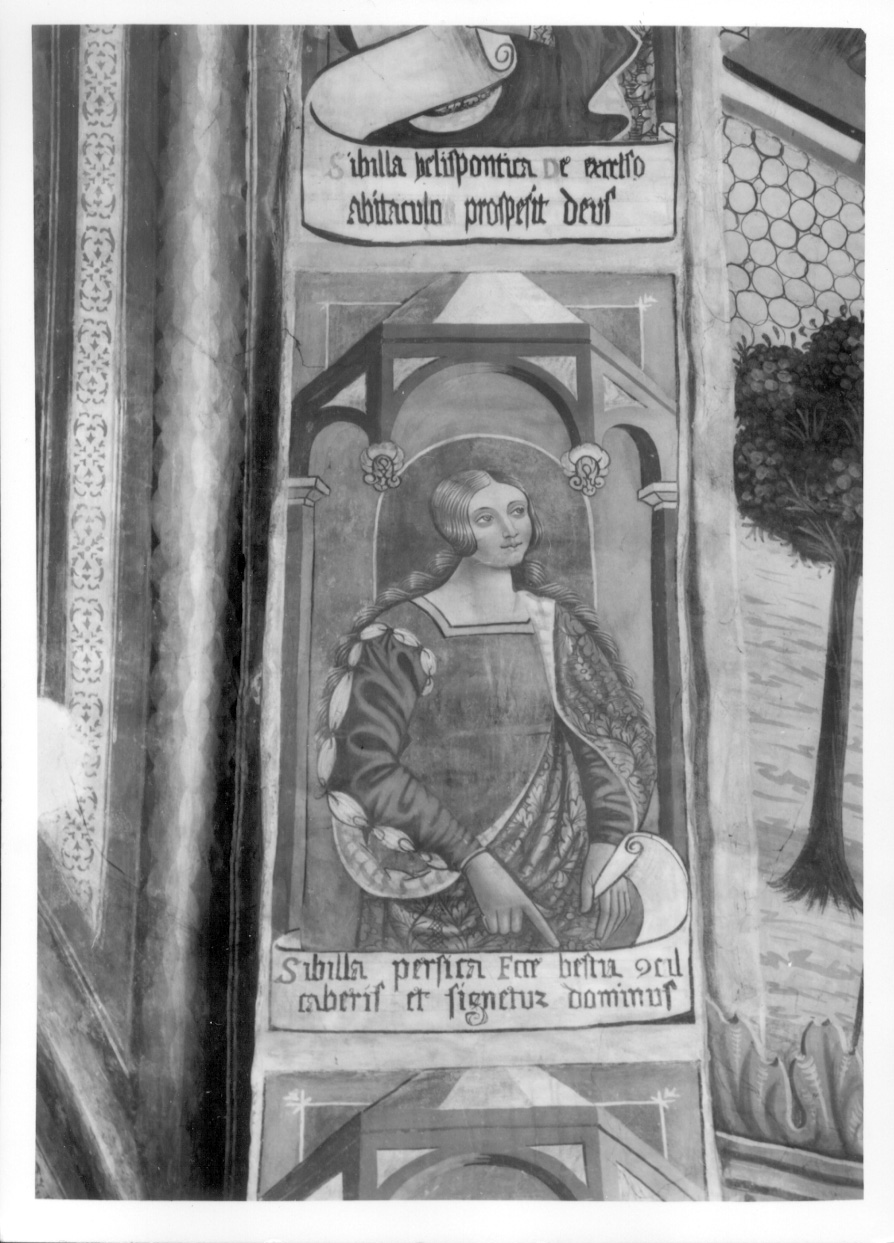 Sibilla helispontica De excelso
abitaculo prospesit deus
Sibilla persica Ecce bestia 9cul
caberis et signetur dominus